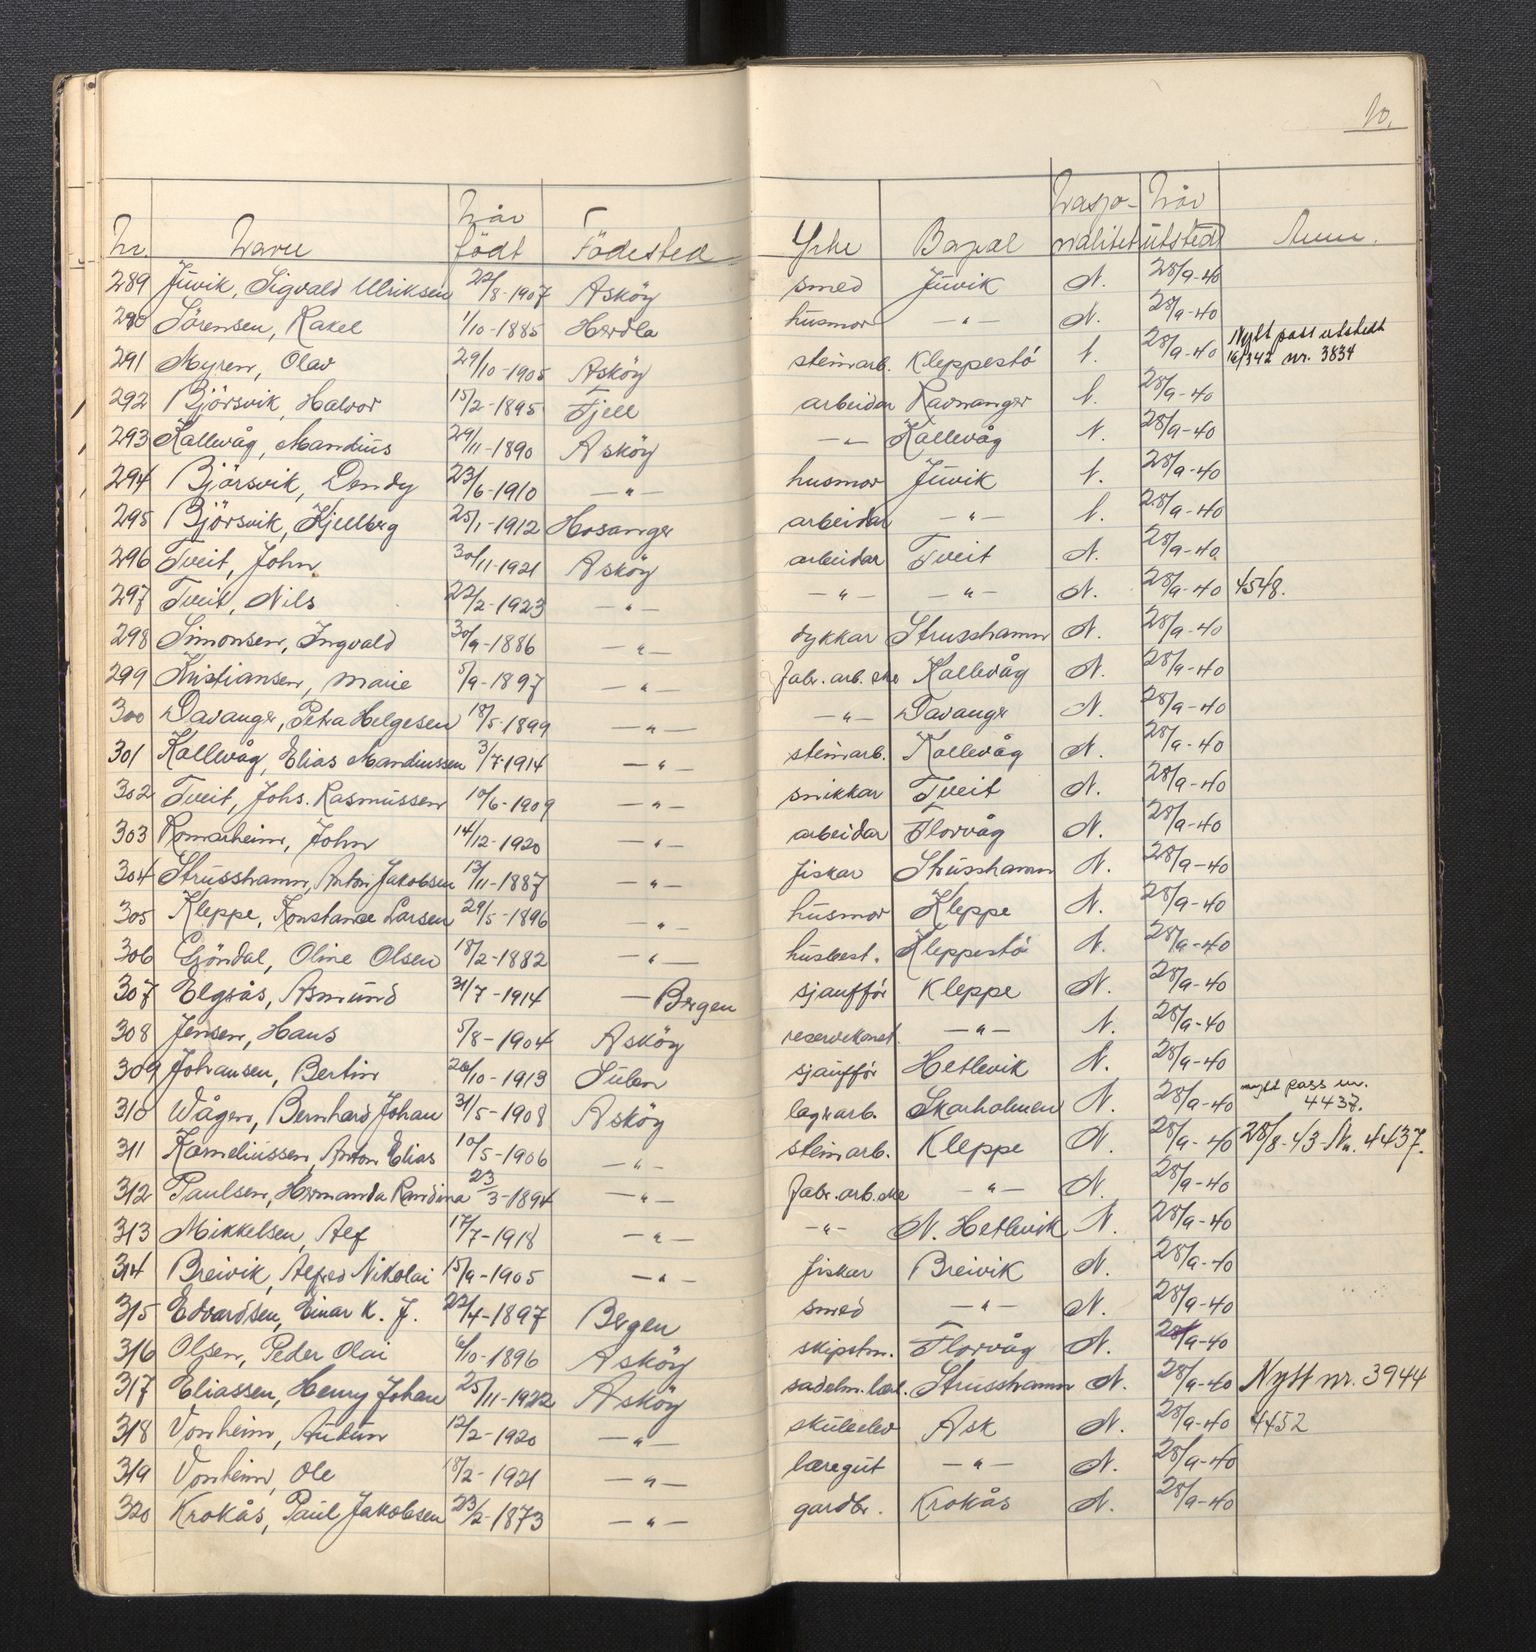 10.
Nr. Navn Når födt Födested Yrke Bopæl Nasjonalitet Når utsted Anm.
289 Juvik, Sigvald Ulriksen 22/8-1907 Asköy smed Juvik N. 28/9-40
290 Sörensen, Rakel 1/10-1885 Herdla husmor —"— N. 28/9-40
291 Myren, Olav 29/10-1905 Asköy steinarb. Kleppestö N. 28/9-40 Nytt pass utstedt 16/3 42 nr. 3834
292 Björsvik, Halvor 15/2-1895 Fjell arbeidar Ravnanger N. 28/9-40
293 Kallevåg, Mandius 29/11-1890 Asköy —"— Kallevåg N. 28/9-40
294 Björsvik, Dendy 23/6-1910 —"— husmor Juvik N. 28/9-40
295 Björsvik, Kjellbrg 25/1-1912 Hosanger arbeidar —"— N. 28/9-40
296 Tveit, John 30/11-1921 Asköy arbeidar Tveit N. 28/9-40
297 Tveit, Nils 22/2-1923 —"— —"— —"— N. 28/9-40 4548.
298 Simonsen, Ingvald 30/9-1886 —"— dykkar Strusshamn N. 28/9-40
299 Kristiansen, Marie 5/9-1897 —"— fabr. arb. ske Kallevåg N. 28/9-40
300 Davanger, Petra Helgesen 18/5-1899 —"— —"— Davanger N. 28/9-40
301 Kallevåg, Elias Mandiussen 3/7-1914 —"— steinarb. Kallevåg N. 28/9-40
302 Tveit, Johs. Rasmussen 10/6-1909 —"— snikkar Tveit N. 28/9-40
303 Romarheim, John 14/12-1920 —"— arbeidar Florvåg N. 28/9-40
304 Strusshamn, Anton Jakobsen 13/11-1887 —"— fiskar Strusshamn N. 28/9-40
305 Kleppe, Konstance Larsen 29/5-1896 —"— husmor Kleppe N. 28/9-40
306 Gjöndal, Oline Olsen 18/2-1882 —"— husbest. Kleppestö N. 28/9-40
307 Elgsås, Asmund 31/7-1914 — Bergen sjaufför Kleppe N. 28/9-40
308 Jensen, Hans 5/8-1904 Asköy reservekonst. —"— N. 28/9-40
309 Johansen, Bertin 20/10-1913 Sulen sjauffór Hetlevik N. 28/9-40
310 Vågen, Bernhard Johan 31/5-1908 Asköy lagerarb. Skarholmen N. 28/9-40 nytt pass nr. 4437.
311 Korneliussen, Anton Elias 10/5-1906 —"— steinarb. Kleppe N. 28/9-40 28/8-43 Nr. 4437.
312 Paulsen, Hermanda Randina 23/3-1894 —"— fabr. arb. ske —"— N. 28/9-40
313 Mikkelsen, Alf 17/7-1918 —"— —"— N. Hetlevik N. 28/9-40
314 Breivik, Alfred Nikolai 15/9-1905 —"— fiskar Breivik N. 28/9-40
315 Edvardsen, Einar K. J. 22/4-1897 Bergen smed —"— N. 28/9-40
316 Olsen, Peder Olai 6/10-1896 Asköy skipstm. Florvåg N. 28/9-40
317 Eliassen, Henry Johan 25/11-1922 Asköy sadelm. lærl. Strusshamn N. 28/9-40 Nytt nr. 3944
318 Vonheim, Audun 12/2-1920 —"— skuleelev Ask N. 28/9-40 4452
319 Vonheim, Ole 18/2-1921 —"— læregut —"— N. 28/9-40
320 Krokås, Paul Jakobsen 23/2-1873 —"— gardbr. Krokås N. 28/9-40